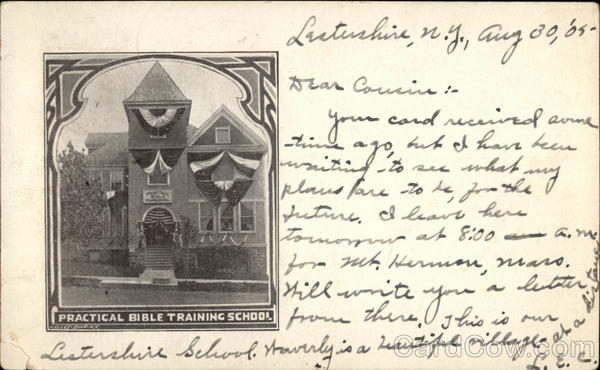 Lestershire, N.Y., Aug 30, '05-
Dear Cousin:-
Your card received some
-time ago, but I have been
waiting to see what my
plans are to be, for the
future. I leave here
tomorrow at 8:00 a.m.
for Mt. Hermon, Mass.
Will write you a letter
from there. This is our
Lestershire School. Waverly is a beautiful village at a distance.
L. E. C.
PRACTICAL
BIBLE
PRACTICAL BIBLE TRAINING SCHOOL.
CardCow.com